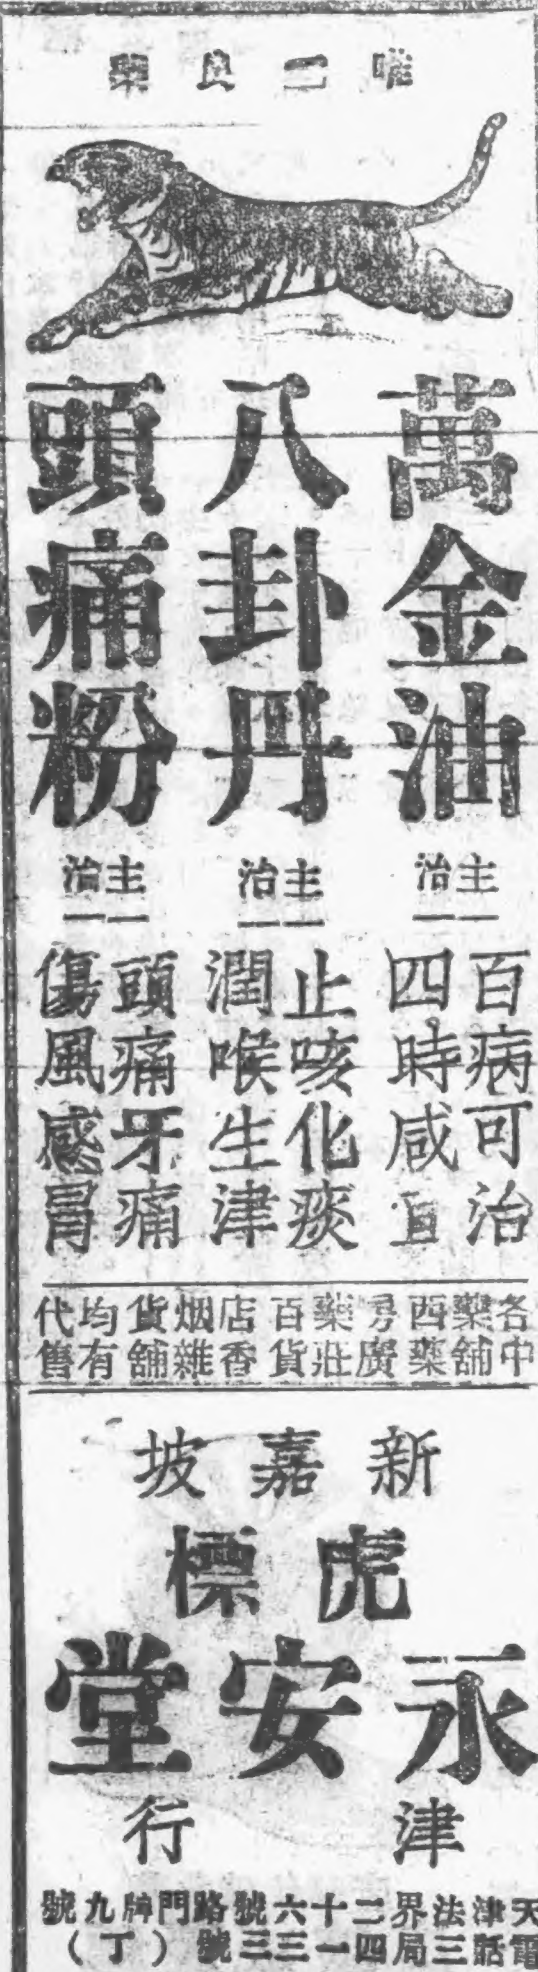 唯良藥
萬金油
主治
百病可治
四時咸宜
八卦丹
主治
止咳化痰
潤喉生津
頭痛粉
主治
頭痛牙痛
傷風感冒
各中藥舖西藥房廣藥莊百貨店香烟雜貨舖均有代售
新嘉坡
虎標
永安堂
津行
天津法界二十六號路門牌九號
電話三局四一三三號（丁）